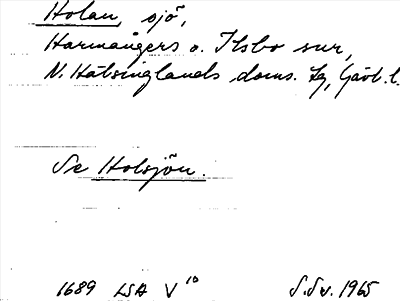 Holan, sjö,
Harmångers o. Ilsbo snr,
N. Hälsinglands doms. tg, Gävl. l.
Se Holsjön.
1689 LSA V 10 S.Sv. 1965